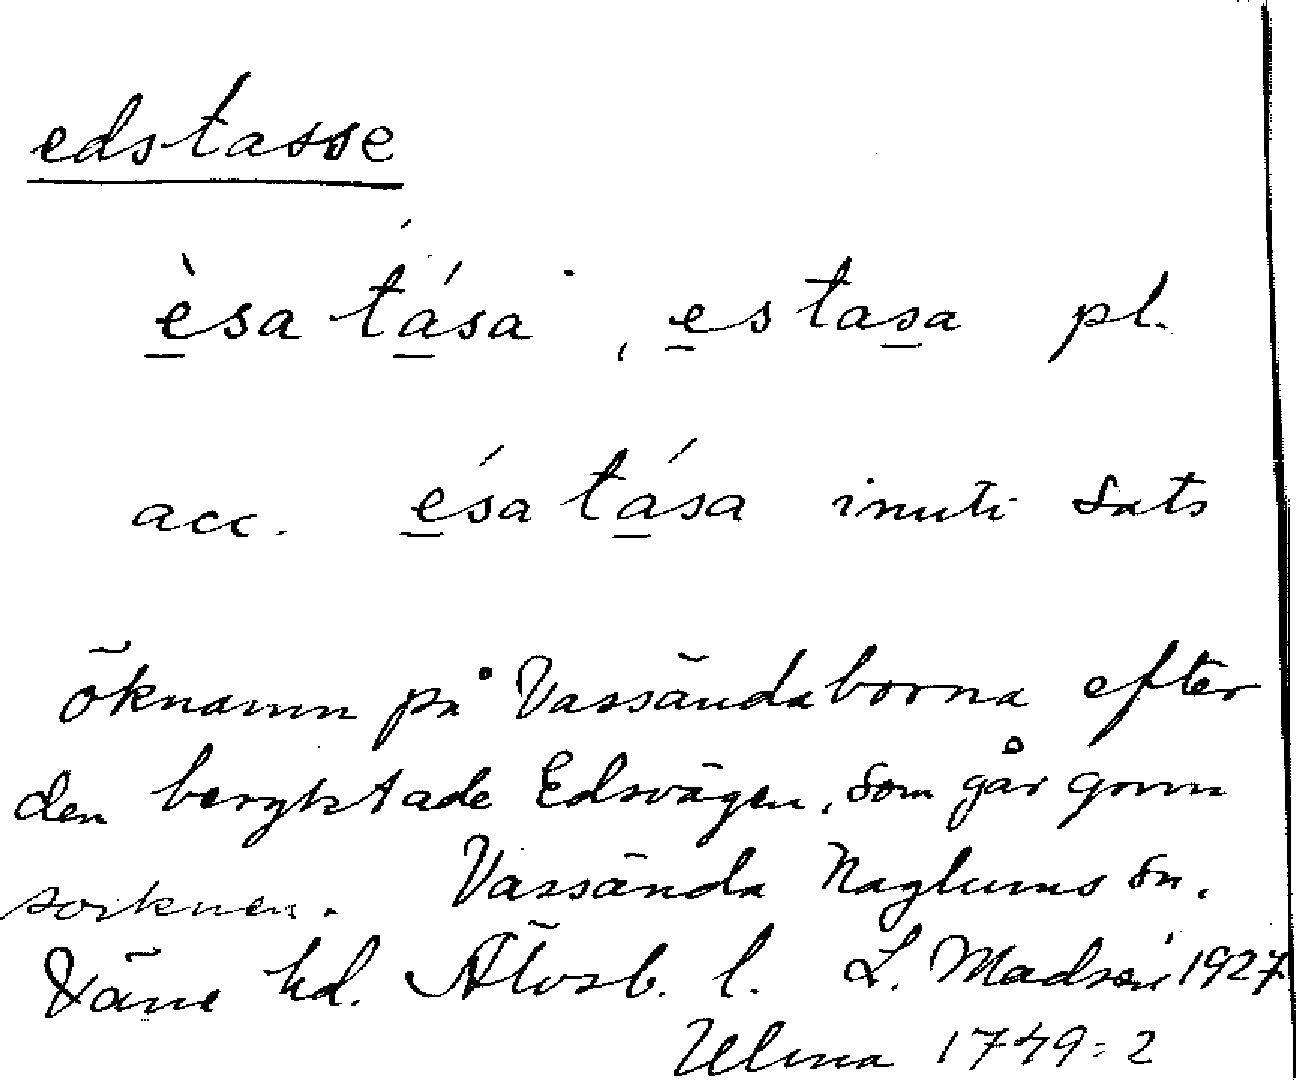 edstasse
èsa tása, estasa pl.
acc. ésa tása inuti sats
öknamn på Vassändaborna efter
den beryktade Edsvägen, som går gnm
socknen. Vassända Naglums sn.
Väne hd. Älvsb. l. L. Madsén 1927.
Ulma 1749:2